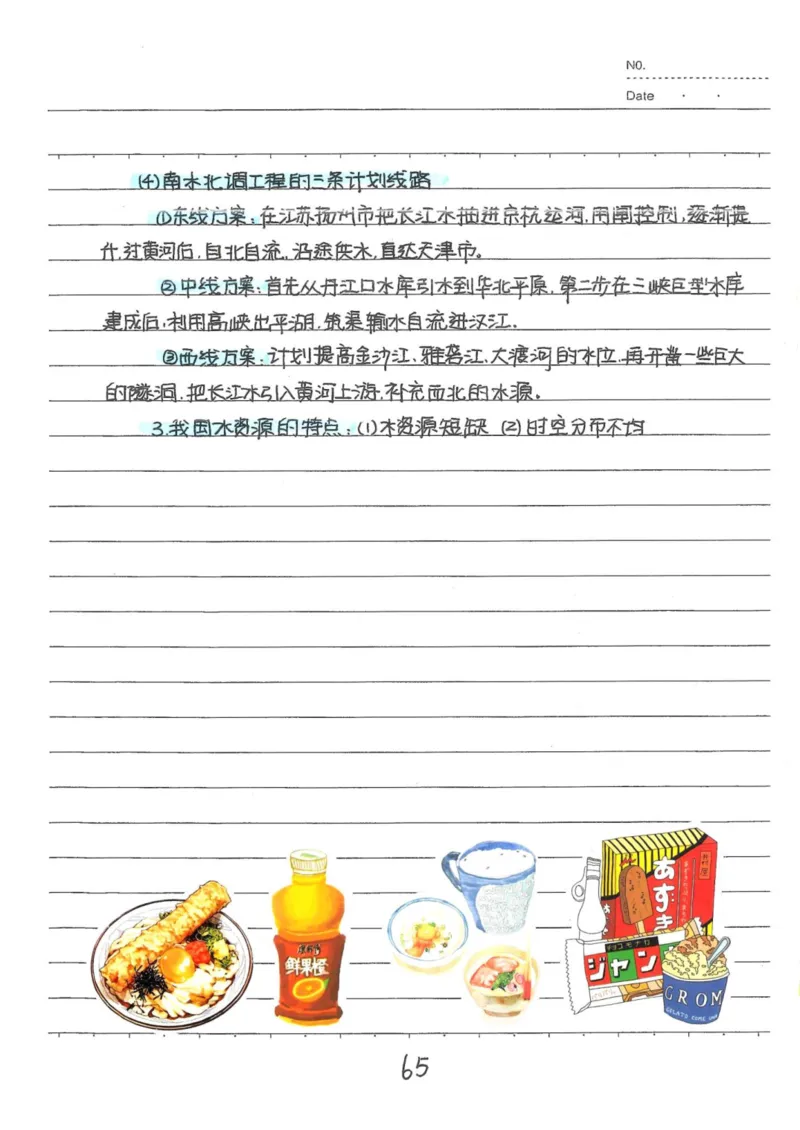 No.
Date
(4)南水北调工程的三条计划线路
①东线方案:在江苏扬州市把长江水抽进京杭运河,用闸控制,逐渐提
升,过黄河后,自北自流,沿途供水,直达天津市。
②中线方案:首先从丹江口水库引水到华北平原,第二步在三峡巨型水库
建成后,利用高峡出平湖,筑渠输水自流进汉江.
③西线方案:计划提高金沙江、雅砻江、大渡河的水位,再开凿一些巨大
的隧洞,把长江水引入黄河上游,补充西北的水源。
3.我国水资源的特点:(1)水资源短缺 (2)时空分布不均
鲜果橙
あずき
ジャン
GROM
GELATO COME UNA
65